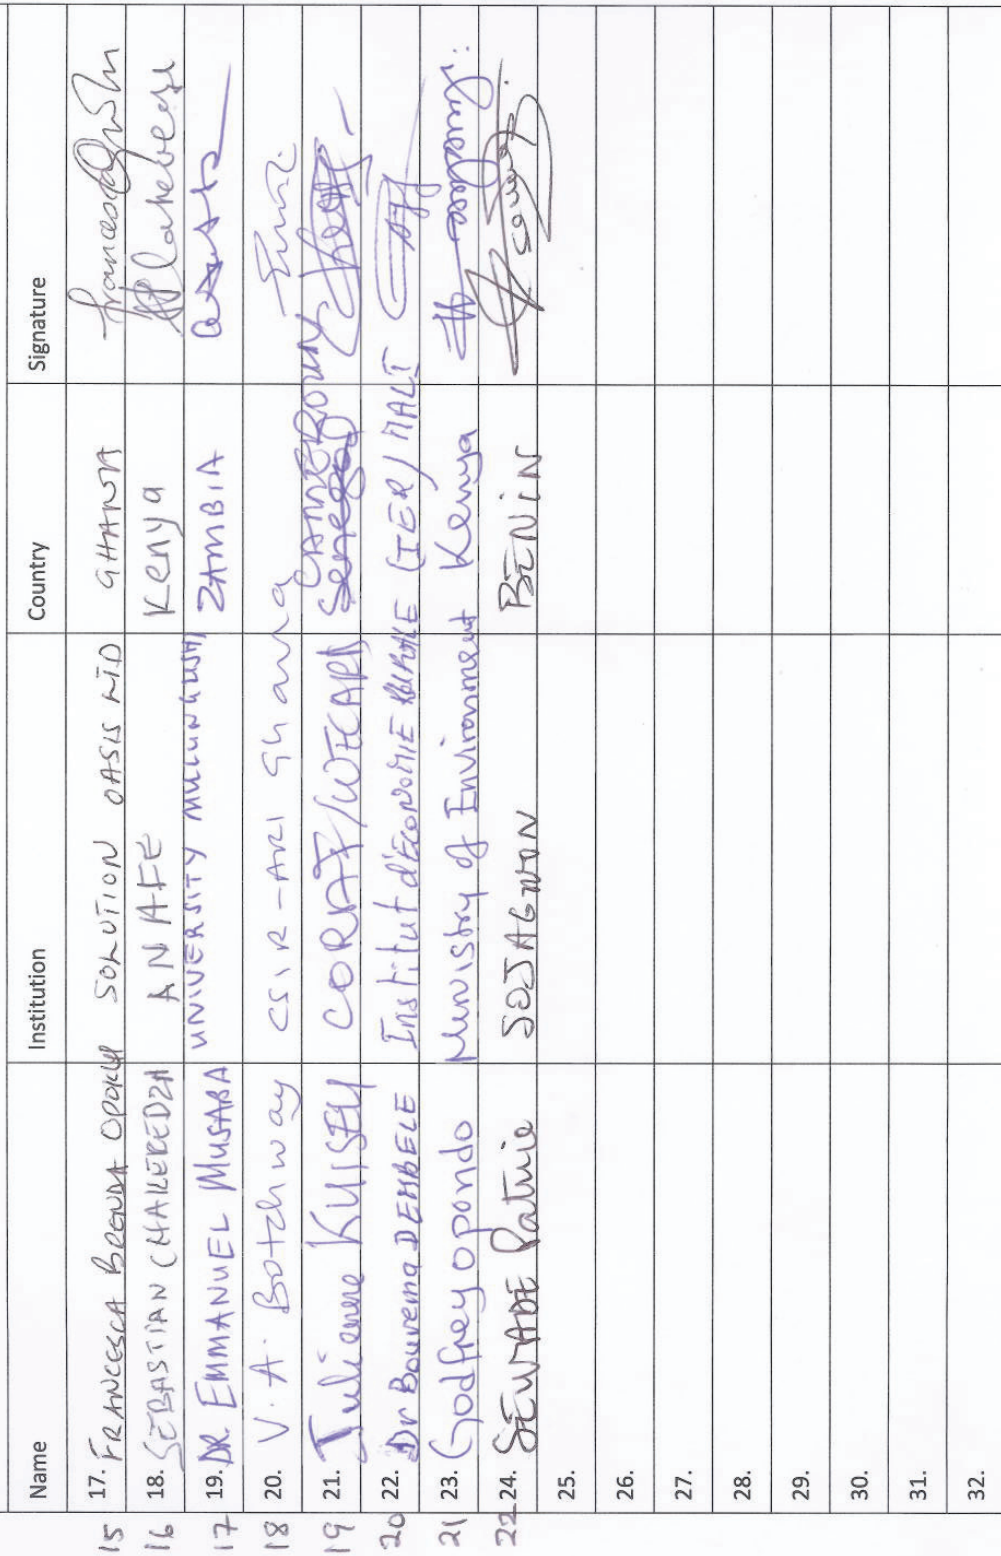 Name Institution Country Signature
15 17. FRANCESCA BRENDA OPOKU SOLUTION OASIS LTD GHANA
16 18. SEBASTIAN CHAKEREDZA ANAFE Kenya
17 19. DR. EMMANUEL MUSABA UNIVERSITY MULUNGUSHI ZAMBIA
18 20. V. A. Botchway CSIR-ARI Ghana
19 21. Julienne KUISEU CORAF/WECARD Senegal CAMEROUN
20 22. Dr Bourema DEMBELE Institut d'ECONOMIE RURALE (IER/MALI
21 23. Godfrey Opondo Ministry of Environment Kenya
22 24. SEWADE Patrice SOJAGNON BENIN
25.
26.
27.
28.
29.
30.
31.
32.